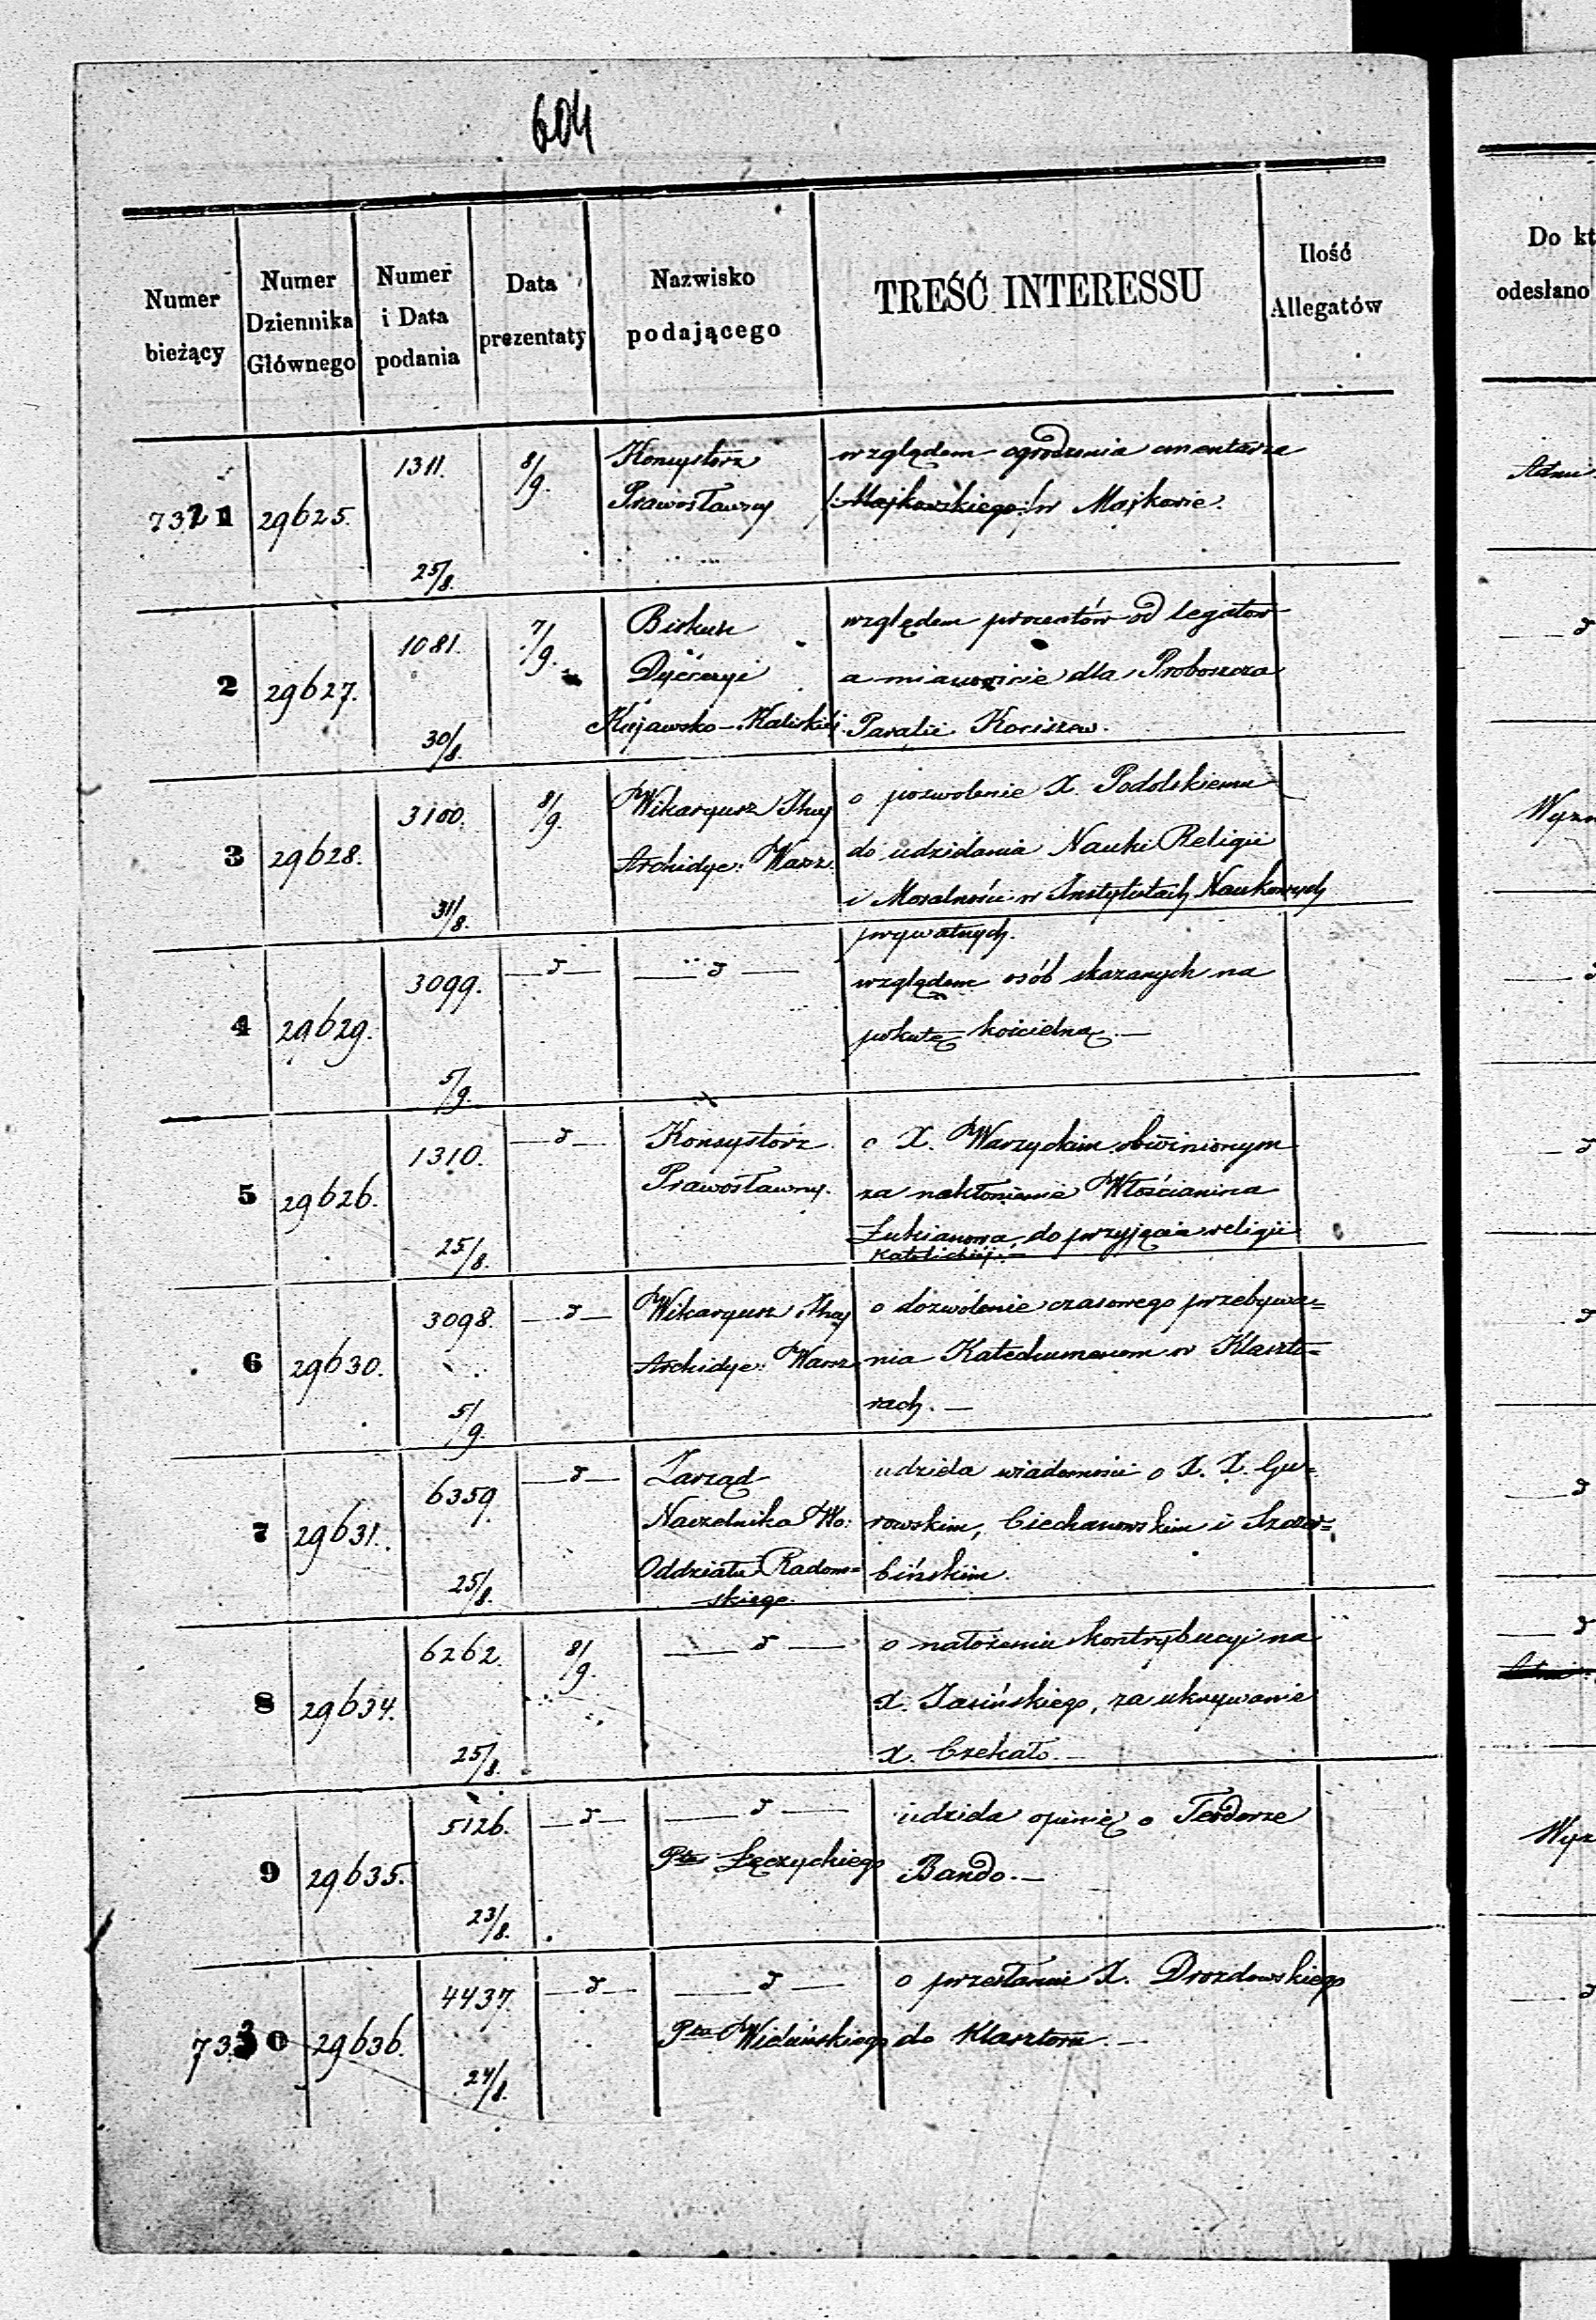 604
Numer bieżący
Numer Dziennika Głównego
Numer i Data podania
Data prezentaty
Nazwisko podającego
TREŚĆ INTERESSU
Ilość Allegatów
Do kt
odesłano
7321 29625. 1311. 25/8. 8/9.
Konsystorz
Prawosławny
względem ogrodzenia cmentarza
/:Majkowskiego:/ w Majkowie.
2 29627. 1081. 30/8. 7/9.
Biskup
Dyecezyi
Kujawsko-Kaliskiéj
względem procentów od legatów
a mianowicie dla Proboszcza
Parafii Kociszew.
3 29628. 3100. 31/8. 8/9.
Wikaryusz Jlny
Archidye: Warsz.
o pozwolenie X. Podolskiemu
do udzielania Nauki Religii
i Moralności w Instytutach Naukowych
prywatnych.
4 29629. 3099. 5/9. —d— —d—
względem osób skazanych na
pokutę kościelną.—
5 29626. 1310. 25/8. —d—
Konsystórz
Prawosławny.
o X. Warzyckim obwinionym
za nakłonienie Włościanina
Łukianowa do przyjęcia religii
Katolickiéj.—
6 29630. 3098. 5/9. —d—
Wikaryusz Jlny
Archidye: Warsz.
o dozwolenie czasowego przebywa=
nia Katechumenom w Klaszto=
rach.—
7 29631. 6359. 25/8. —d—
Zarząd
Naczelnika Wo:
Oddziału Radom=
skiego.
udziela wiadomości o X. X. Gu=
rowskim, Ciechanowskim i Szczer=
bińskim.
8 29634. 6262. 25/8. 8/9. —d—
o nałożeniu kontrybucyi na
X. Jasińskiego, za ukrywanie
X. Czekało.—
9 29635. 5126. 23/8. —d— —d—
Ptu Łęczyckiego
udziela opinię o Teodorze
Bando.—
7330 29636. 4437. 24/8. —d— —d—
Ptu Wieluńskiego
o przesłanie X. Drozdowskiego
do Klasztoru.—